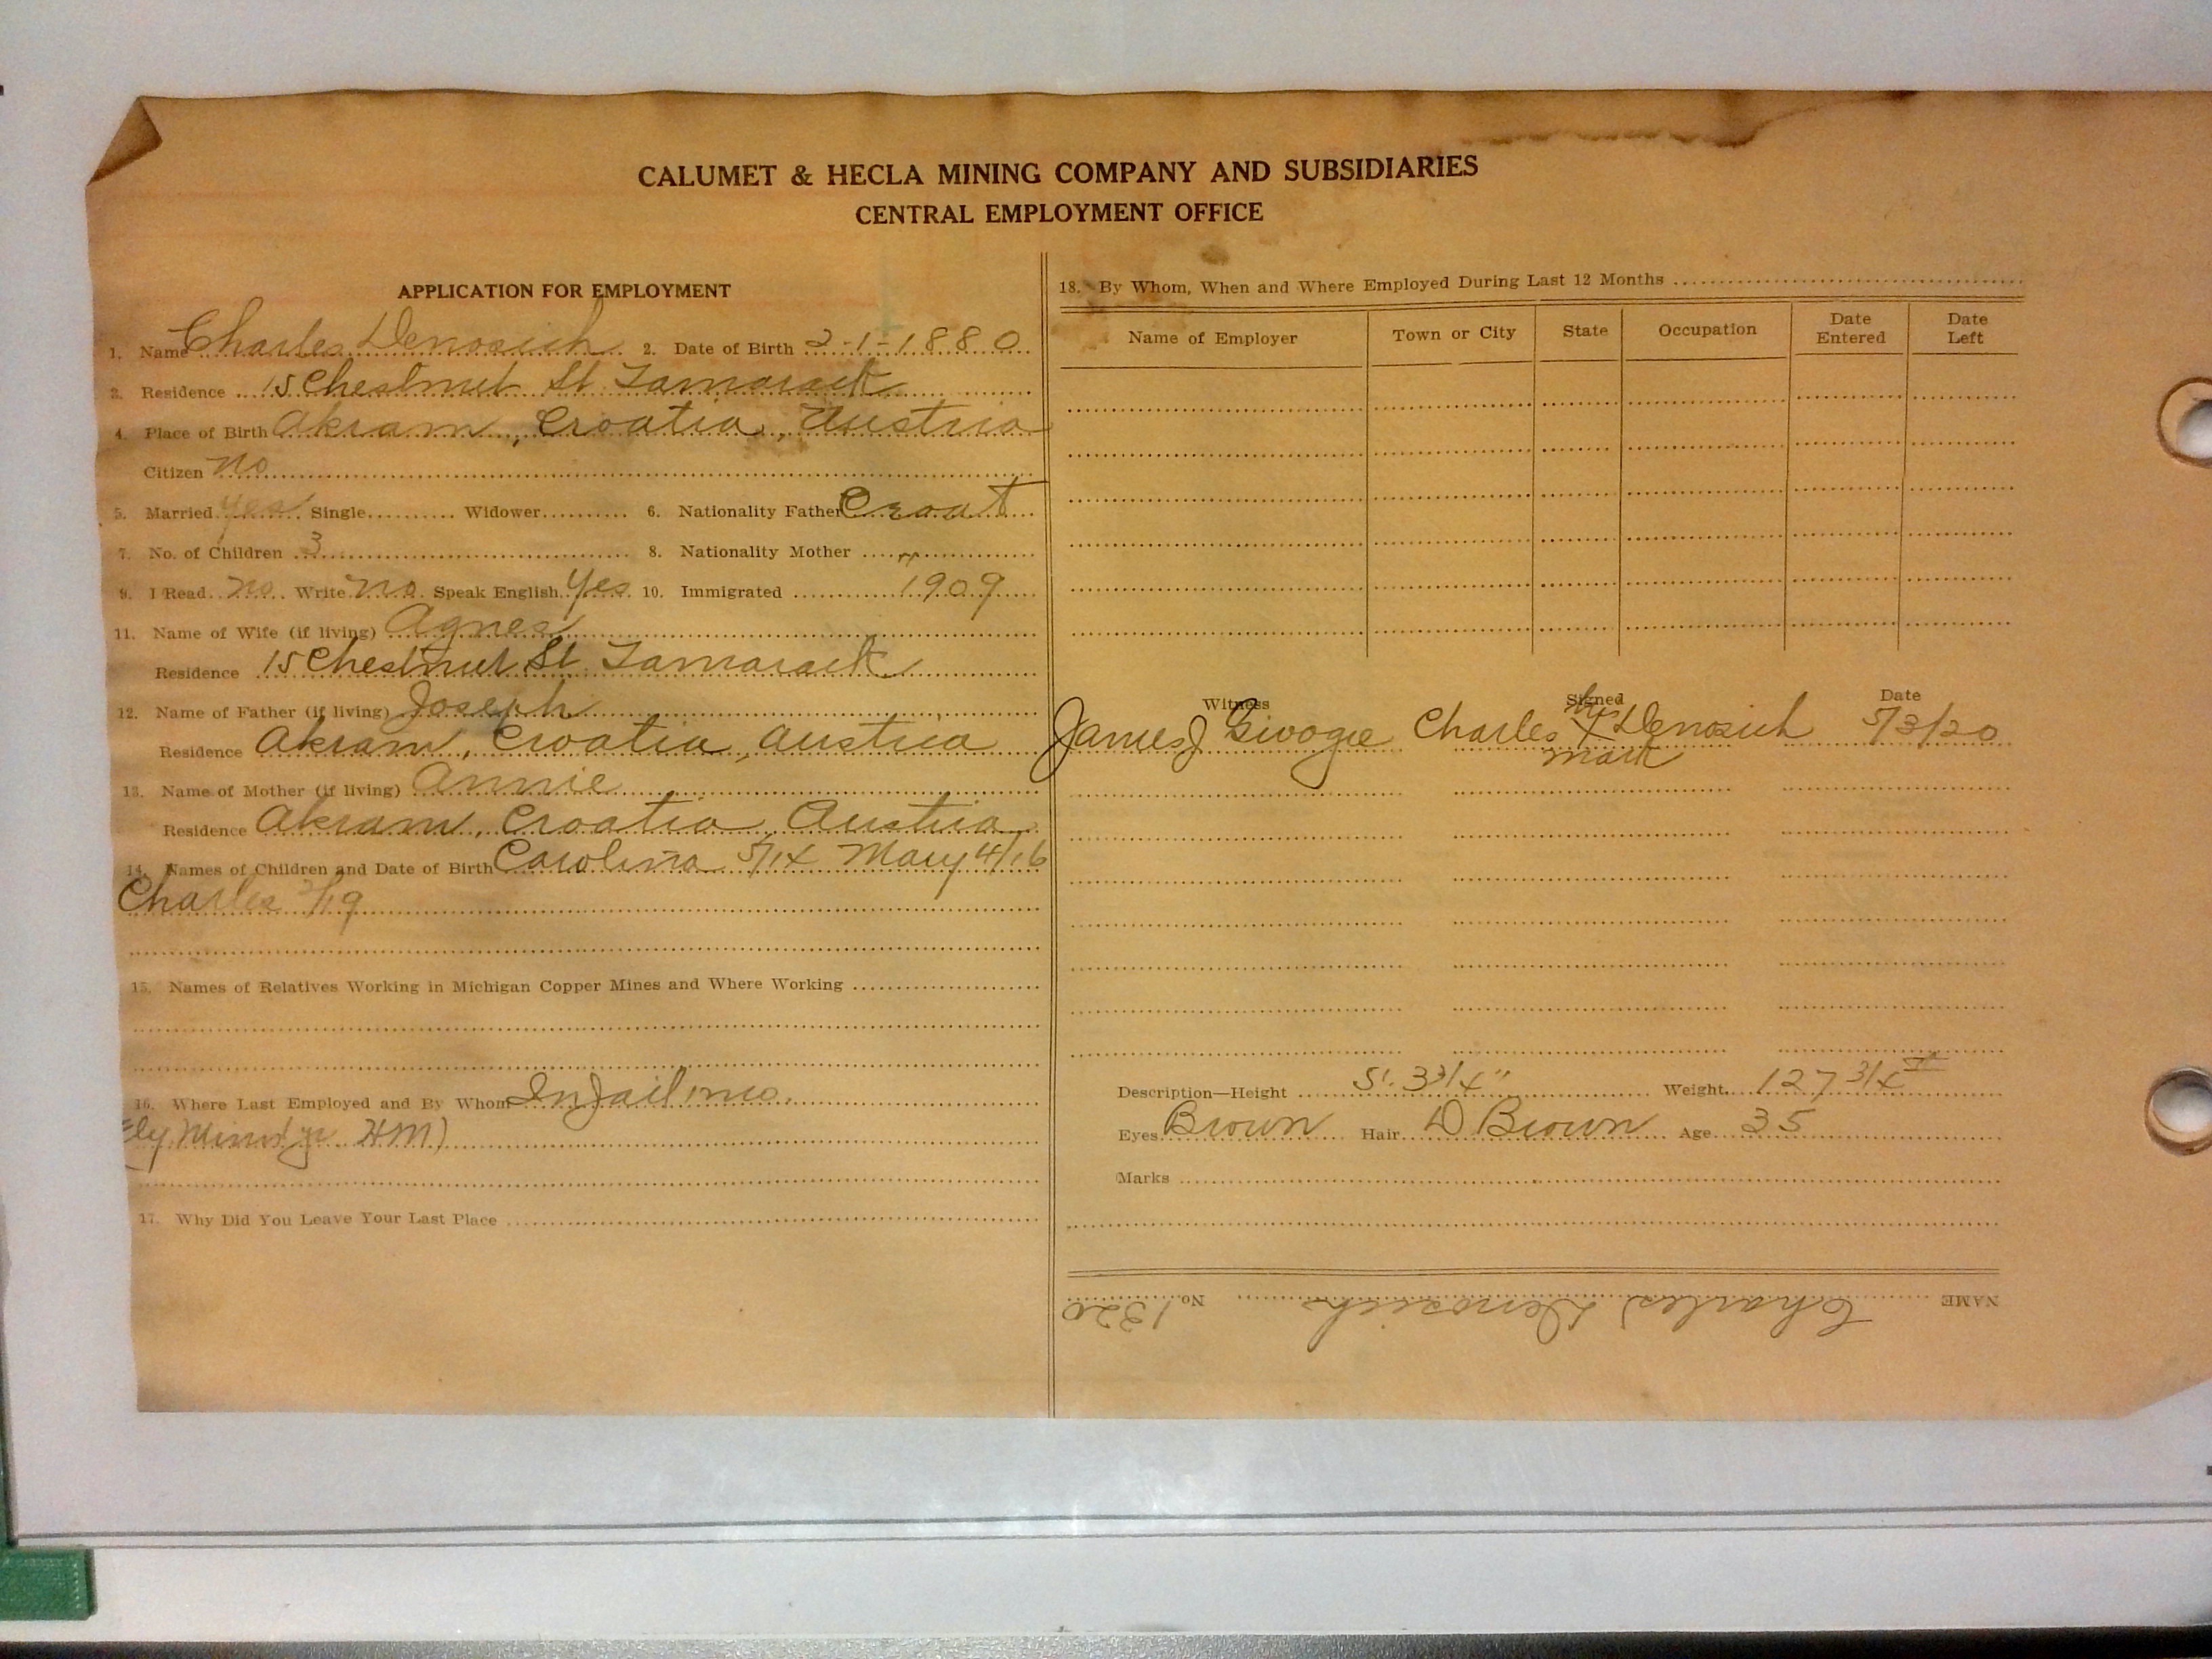 CALUMET & HECLA MINING COMPANY AND SUBSIDIARIES
CENTRAL EMPLOYMENT OFFICE
APPLICATION FOR EMPLOYMENT
1. Name Charles Denosich 2. Date of Birth 2-1-1880
3. Residence 15 Chestnut St Tamarack
4. Place of Birth Akram, Croatia, Austria
Citizen no
5. Married yes Single Widower 6. Nationality Father Croat
7. No. of Children 3 8. Nationality Mother "
9. I Read no Write no Speak English Yes 10. Immigrated 1909
11. Name of Wife (if living) Agnes
Residence 15 Chestnut St Tamarack
12. Name of Father (if living) Joseph
Residence Akram, Croatia, Austria
13. Name of Mother (if living) Annie
Residence Akram, Croatia, Austria
14. Names of Children and Date of Birth Carolina 5/14 Mary 4/16
Charles 2/19
15. Names of Relatives Working in Michigan Copper Mines and Where Working
16. Where Last Employed and By Whom In Jail
17. Why Did You Leave Your Last Place
18. By Whom, When and Where Employed During Last 12 Months
Name of Employer Town or City State Occupation Date Entered Date Left
Witness Signed Date
James J Charles his X mark Denosich 5/3/20
Description—Height 5'. 3 3/4" Weight 127 3/4 #
Eyes Brown Hair D Brown Age 35
Marks
NAME Charles Denosich No. 1320